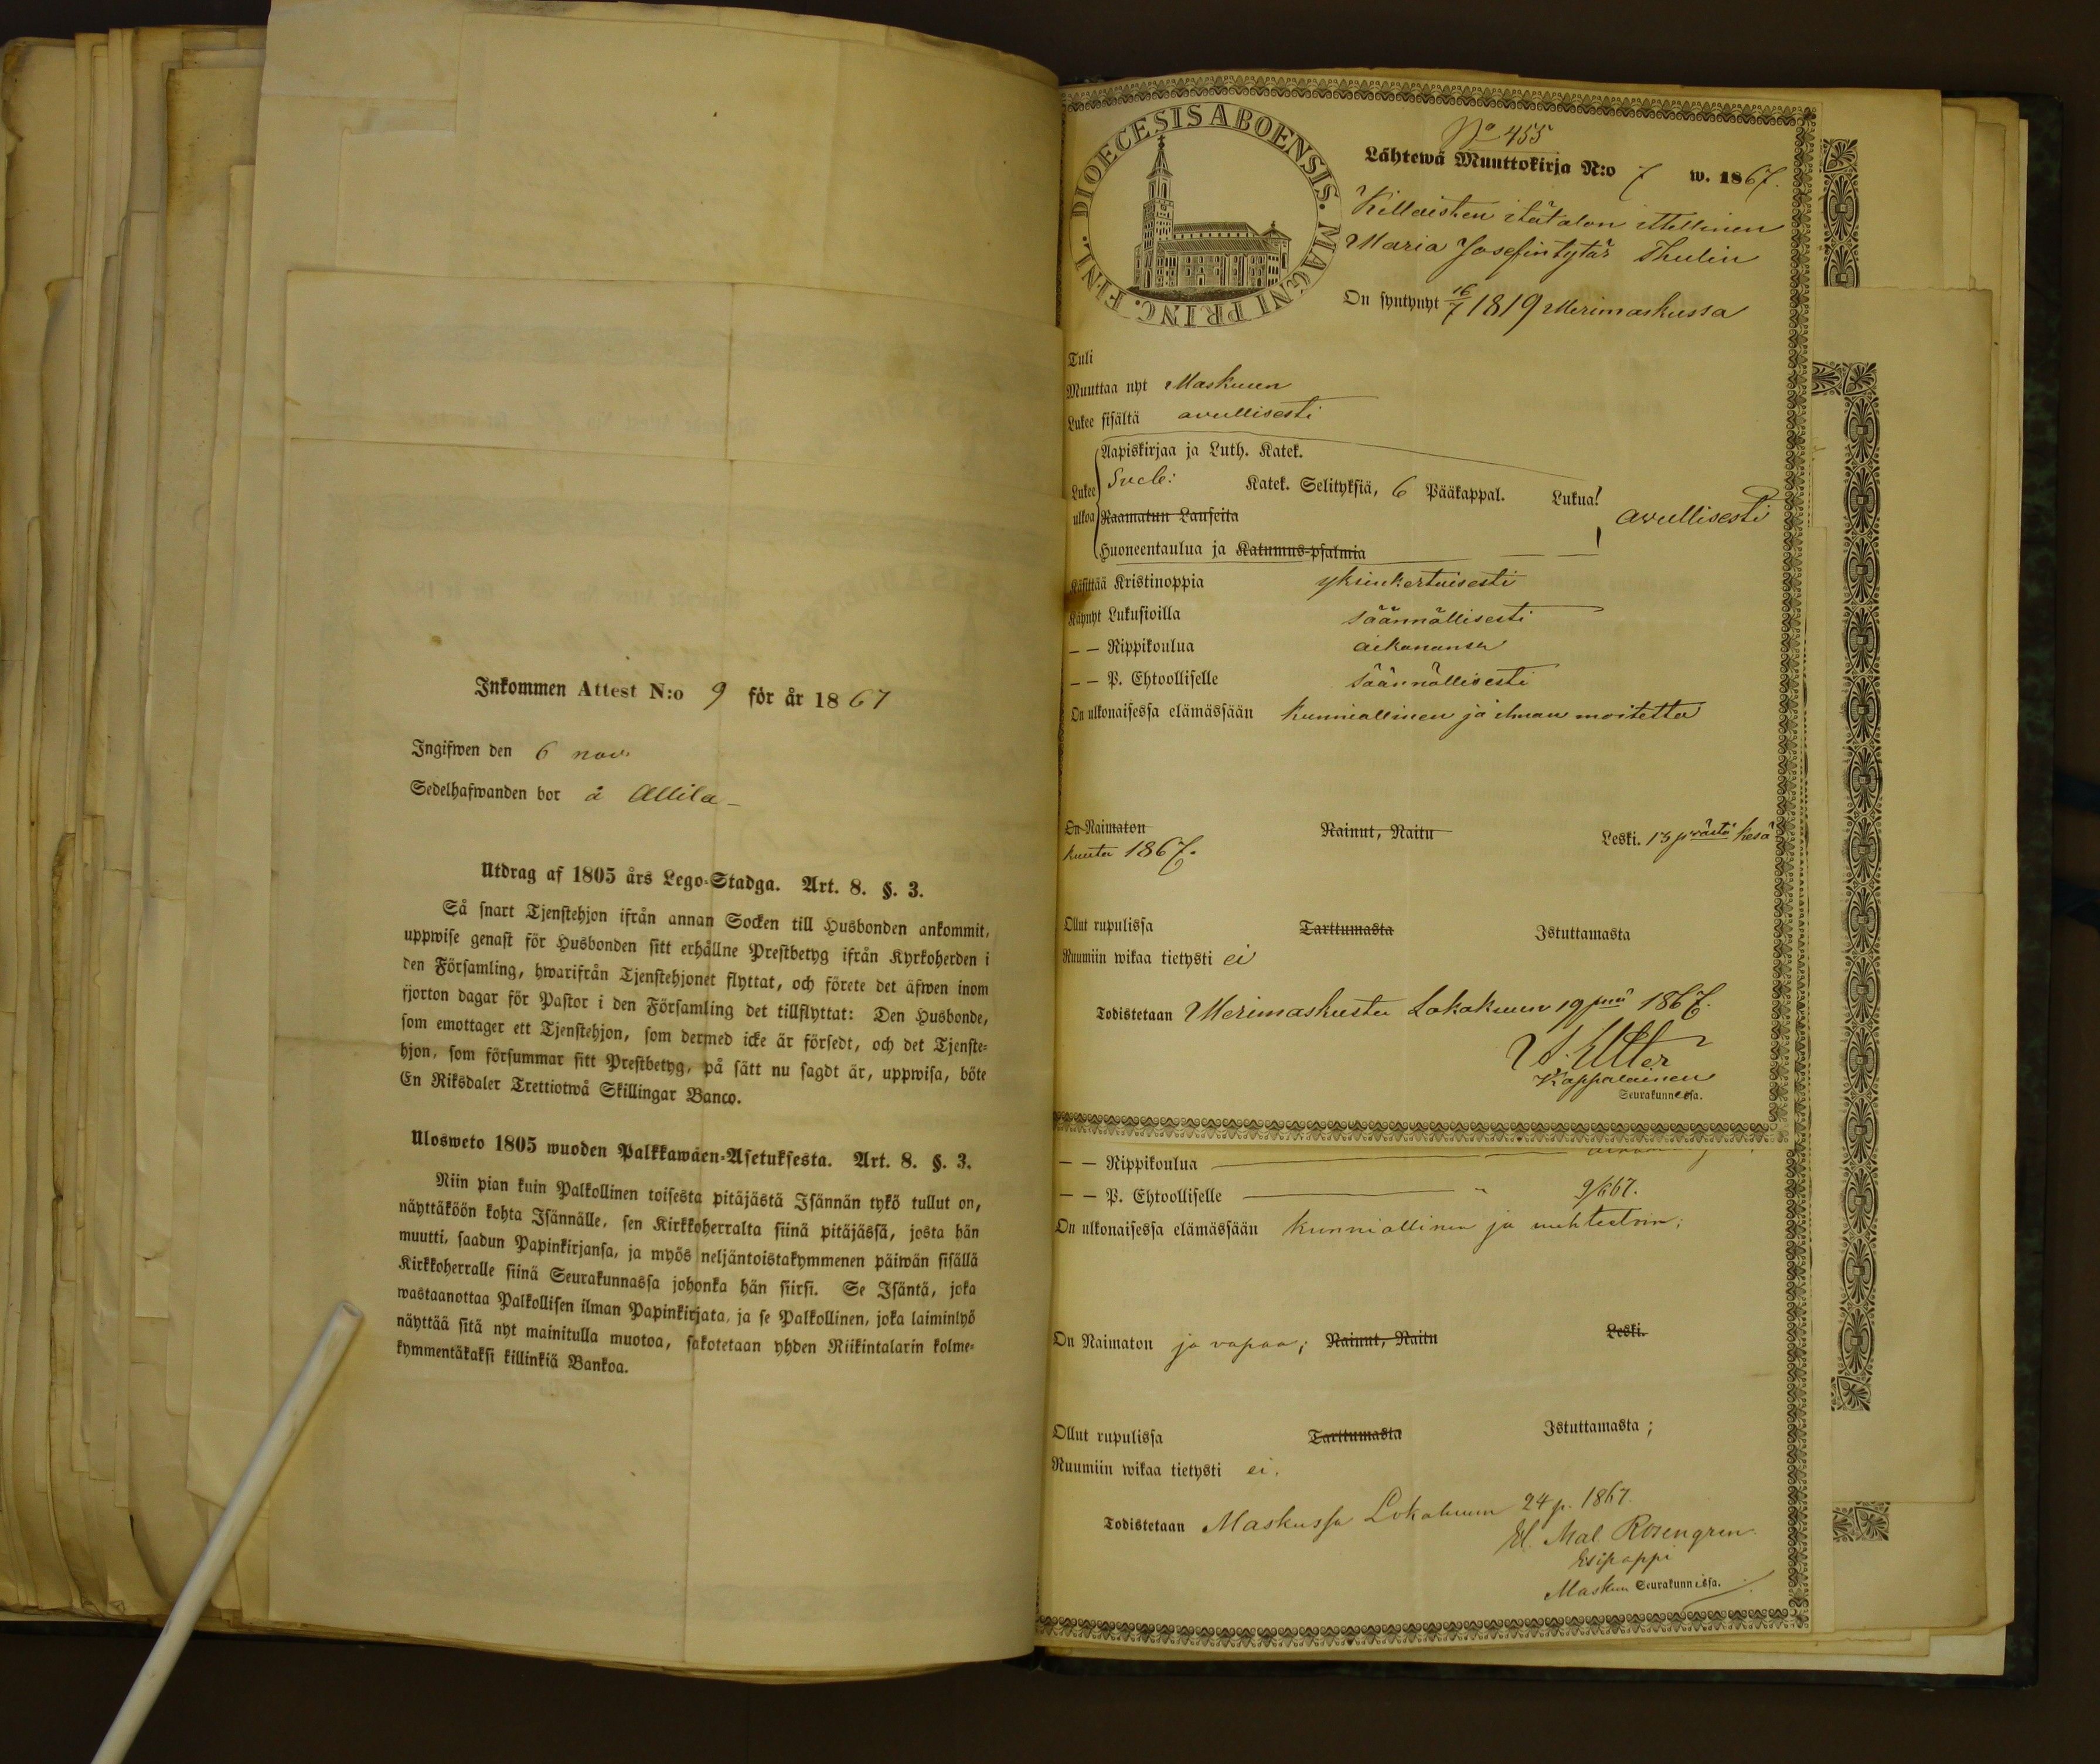 Inkommen Attest N:o 9 för år 1867
Ingifwen den 6 nov.
Sedelhafwanden bor å Allila
Utdrag af 1805 års Lego-Stadga. Art. 8. §. 3.
Så snart Tjenstehjon ifrån annan Socken till Husbonden ankommit,
uppwise genast för Husbonden sitt erhållne Prestbetyg ifrån Kyrkoherden i
den Församling, hwarifrån Tjenstehjonet flyttat, och förete det äfwen inom
fjorton dagar för Pastor i den Församling det tillflyttat: Den Husbonde,
som emottager ett Tjenstehjon, som dermed icke är försedt, och det Tjenste-
hjon, som försummar sitt Prestbetyg, på sätt nu sagdt är, uppwisa, böte
En Riksdaler Trettiotwå Skillingar Banco.
Ulosweto 1805 wuoden Palkkawäen-Asetuksesta. Art. 8. §. 3.
Niin pian kuin Palkollinen toisesta pitäjästä Isännän tykö tullut on,
näyttäköön kohta Isännälle, sen Kirkkoherralta siinä pitäjässä, josta hän
muutti, saadun Papinkirjansa, ja myös neljäntoistakymmenen päiwän sisällä
Kirkkoherralle siinä Seurakunnassa johonka hän siirsi. Se Isäntä, joka
wastaanottaa Palkollisen ilman Papinkirjata, ja se Palkollinen, joka laiminlyö
näyttää sitä nyt mainitulla muotoa, sakotetaan yhden Riikintalarin kolme-
kymmentäkaksi killinkiä Bankoa.
DIOECESIS ABOENSIS. MAGNI PRINC. FINL.
No 455
Lähtewä Muuttokirja N:o 7 w. 1867.
Killaisten itätalon ittellinen
Maria Josefintytär Thulin
On syntynyt 16/7 1819 Merimaskussa
Tuli
Muuttaa nyt Maskuun
Lukee sisältä avullisesti
Aapiskirjaa ja Luth. Katek.
Lukee ulkoa Sveb: Katek. Selityksiä, 6 Pääkappal. Lukua! avullisesti
Raamatun Lauseita
Huoneentaulua ja Katumus-psalmia
Käsittää Kristinoppia yksinkertaisesti
Käynyt Lukusioilla säännöllisesti
— — Rippikoulua aikanansa
— — P. Ehtoolliselle säännöllisesti
On ulkonaisessa elämässään kunniallinen ja ilman moitetta
On Naimaton Nainut, Naitu Leski. 13 pvästä kesä
kuuta 1867.
Ollut rupulissa Tarttumasta Istuttamasta
Ruumiin wikaa tietysti ei
Todistetaan Merimaskusta Lokakuun 19 pnä 1867.
Kappalainen
Seurakunnassa.
— — Rippikoulua
— — P. Ehtoolliselle " 9/6 67.
On ulkonaisessa elämässään kunniallinen ja
On Naimaton ja vapaa; Nainut, Naitu Leski.
Ollut rupulissa Tarttumasta Istuttamasta;
Ruumiin wikaa tietysti ei.
Todistetaan Maskussa Lokakuun 24 p. 1867.
Mal Rosengren
Esipappi
Maskun Seurakunnissa.